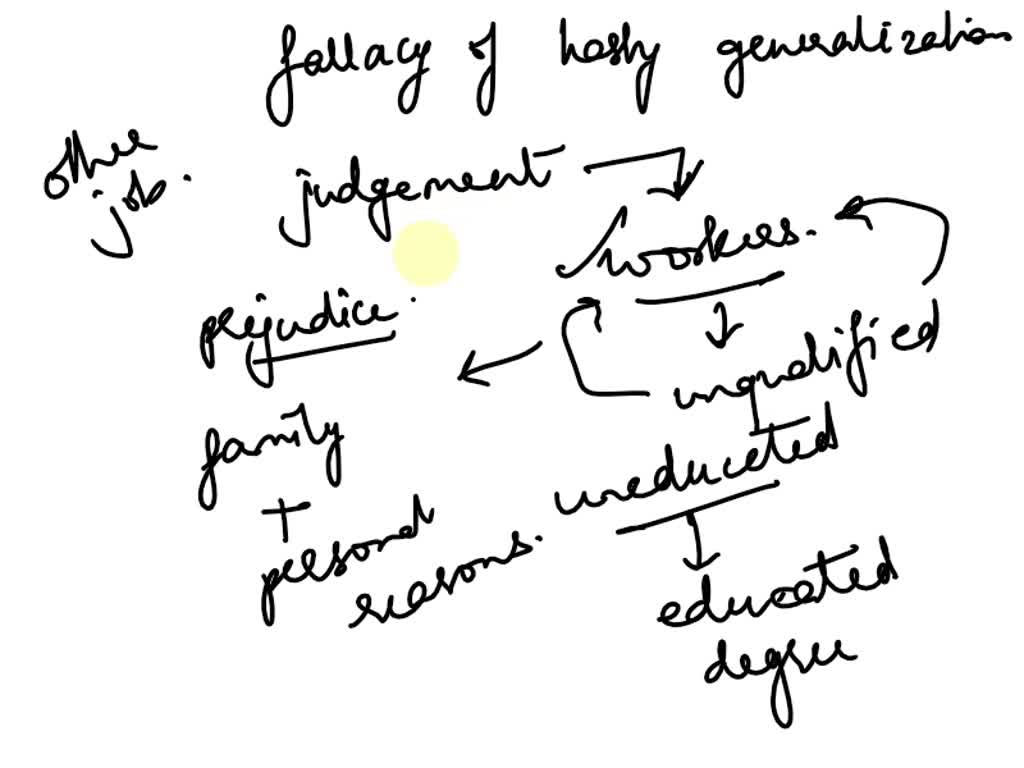 fallacy of hasty generalization
other
job.
judgement
workers.
prejudice.
unqualified
family
uneducated
+
personal
reasons.
educated
degree